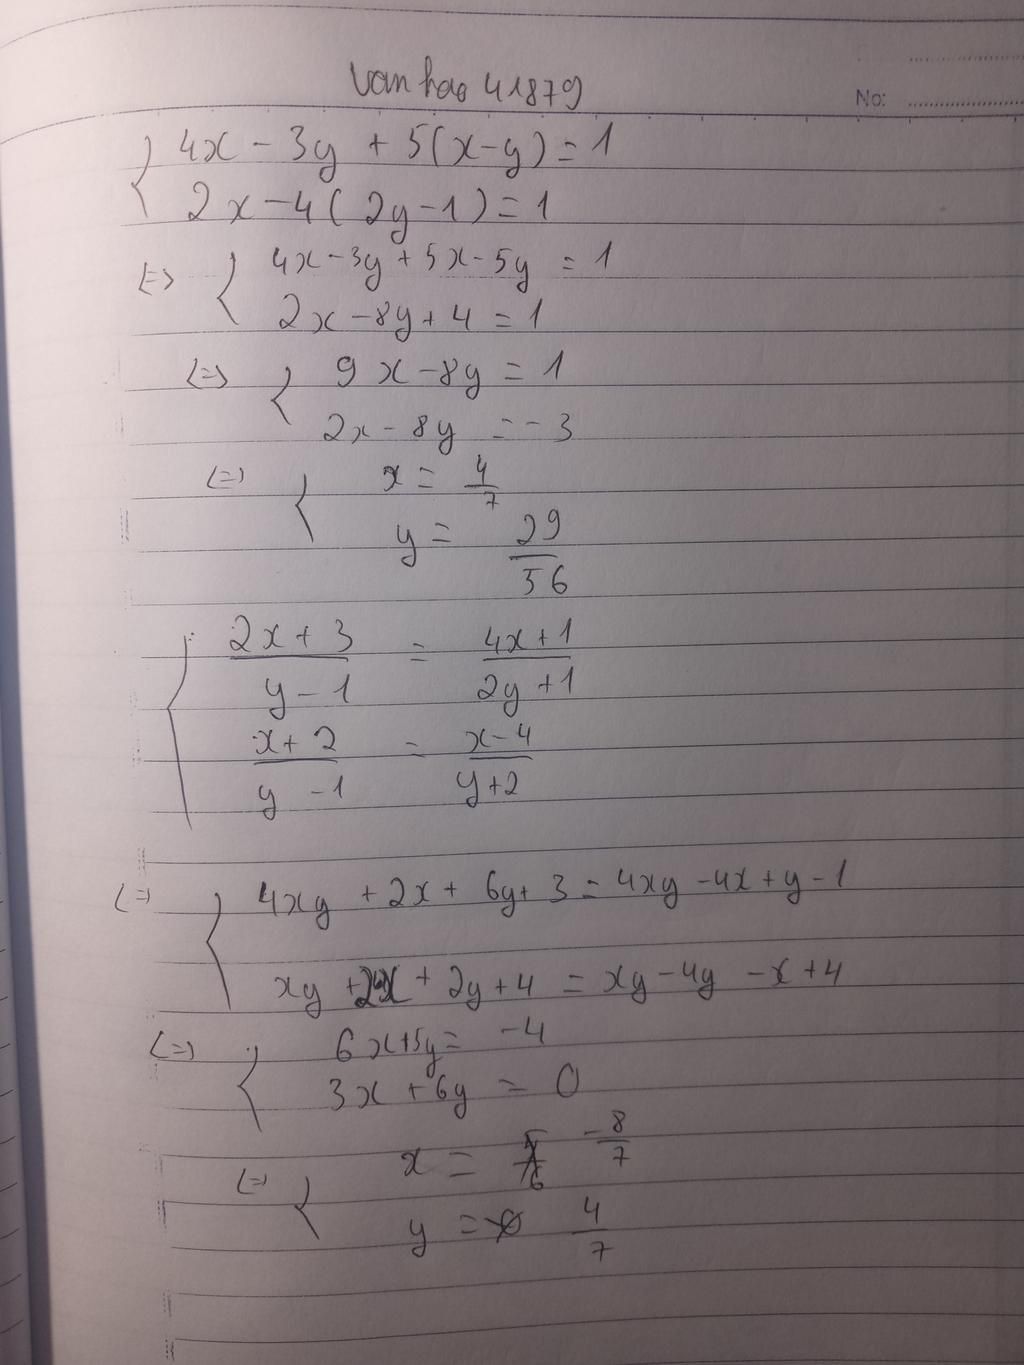 van hao 41879
No:
4x - 3y + 5(x-y) = 1
2x - 4(2y-1) = 1
<=> 4x - 3y + 5x - 5y = 1
2x - 8y + 4 = 1
<=> 9x - 8y = 1
2x - 8y = -3
<=> x = 4/7
y = 29/56
(2x+3)/(y-1) = (4x+1)/(2y+1)
(x+2)/(y-1) = (x-4)/(y+2)
<=> 4xy + 2x + 6y + 3 = 4xy - 4x + y - 1
xy + 2x + 2y + 4 = xy - 4y - x + 4
<=> 6x + 5y = -4
3x + 6y = 0
<=> x = -8/7
y = 4/7